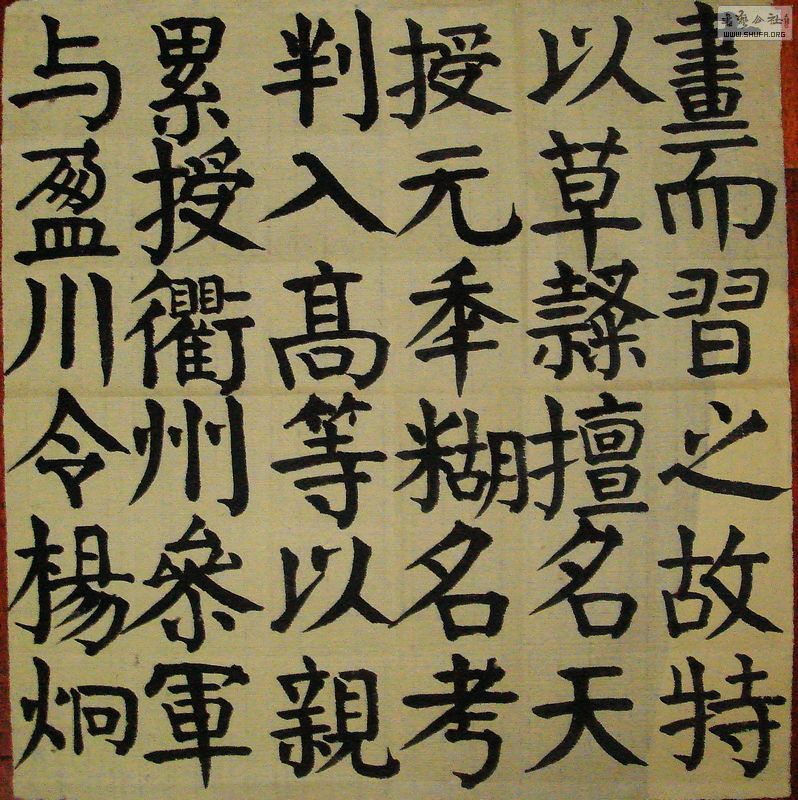 畫而習之故特
以草隸擅名天
授元秊糊名考
判入髙等以親
累授衢州叅軍
与盈川令楊炯
书艺公社
WWW.SHUFA.ORG